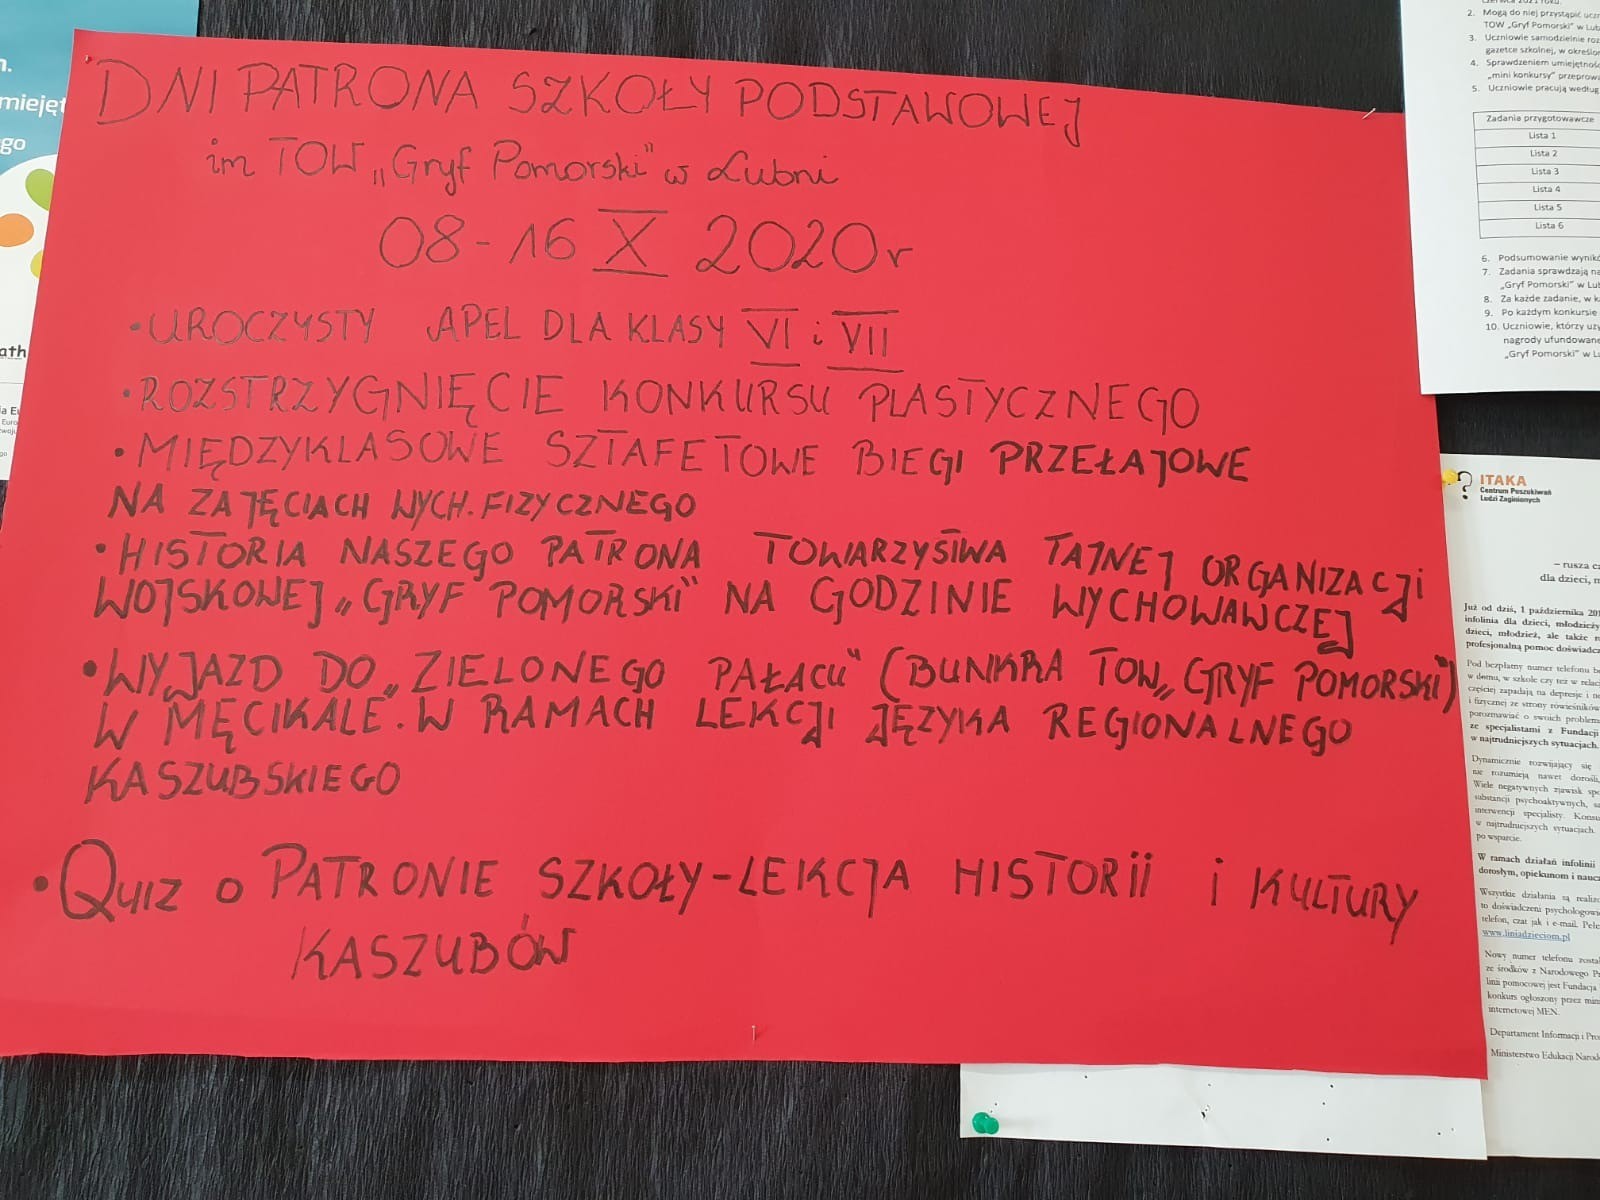 DNI PATRONA SZKOŁY PODSTAWOWEJ
im TOW „Gryf Pomorski" w Lubni
08-16 X 2020r
• UROCZYSTY APEL DLA KLASY VI i VII
• ROZSTRZYGNIĘCIE KONKURSU PLASTYCZNEGO
• MIĘDZYKLASOWE SZTAFETOWE BIEGI PRZEŁAJOWE
NA ZAJĘCIACH WYCH. FIZYCZNEGO
• HISTORIA NASZEGO PATRONA TOWARZYSTWA TAJNEJ ORGANIZACJI
WOJSKOWEJ „GRYF POMORSKI" NA GODZINIE WYCHOWAWCZEJ
• WYJAZD DO „ZIELONEGO PAŁACU" (BUNKRA TOW „GRYF POMORSKI")
W MĘCIKALE. W RAMACH LEKCJI JĘZYKA REGIONALNEGO
KASZUBSKIEGO
• QUIZ O PATRONIE SZKOŁY-LEKCJA HISTORII i KULTURY
KASZUBÓW
2. Mogą do niej przystąpić
TOW „Gryf Pomorski" w
3. Uczniowie samodzielnie
gazetce szkolnej, w
4. Sprawdzeniem
„mini konkursy"
5. Uczniowie pracują według
Zadania przygotowawcze
Lista 1
Lista 2
Lista 3
Lista 4
Lista 5
Lista 6
6. Podsumowanie
7. Zadania sprawdzają
„Gryf Pomorski" w
8. Za każde zadanie, w
9. Po każdym konkursie
10. Uczniowie, którzy
nagrody
„Gryf Pomorski" w
ITAKA
Centrum Poszukiwań
Ludzi Zaginionych
– rusza
dla dzieci,
Już od dziś, 1 października
infolinia dla dzieci,
dzieci, młodzież, ale także
profesjonalną pomoc
Pod bezpłatny numer telefonu
w domu, w szkole czy też w
częściej zapadają na depresje i
i fizycznej ze strony rówieśników
porozmawiać o swoich
ze specjalistami z Fundacji
w najtrudniejszych sytuacjach.
Dynamicznie rozwijający się
nie rozumieją nawet dorośli,
Wiele negatywnych zjawisk
substancji psychoaktywnych,
interwencji specjalisty.
w najtrudniejszych sytuacjach.
po wsparcie.
W ramach działań infolinii
dorosłym, opiekunom i
Wszystkie działania są
to doświadczeni
telefon, czat jak i e-mail.
www.liniadzieciom.pl
Nowy numer telefonu
ze środków z Narodowego
linii pomocowej jest Fundacja
konkurs ogłoszony przez
internetowej MEN.
Departament Informacji i
Ministerstwo Edukacji